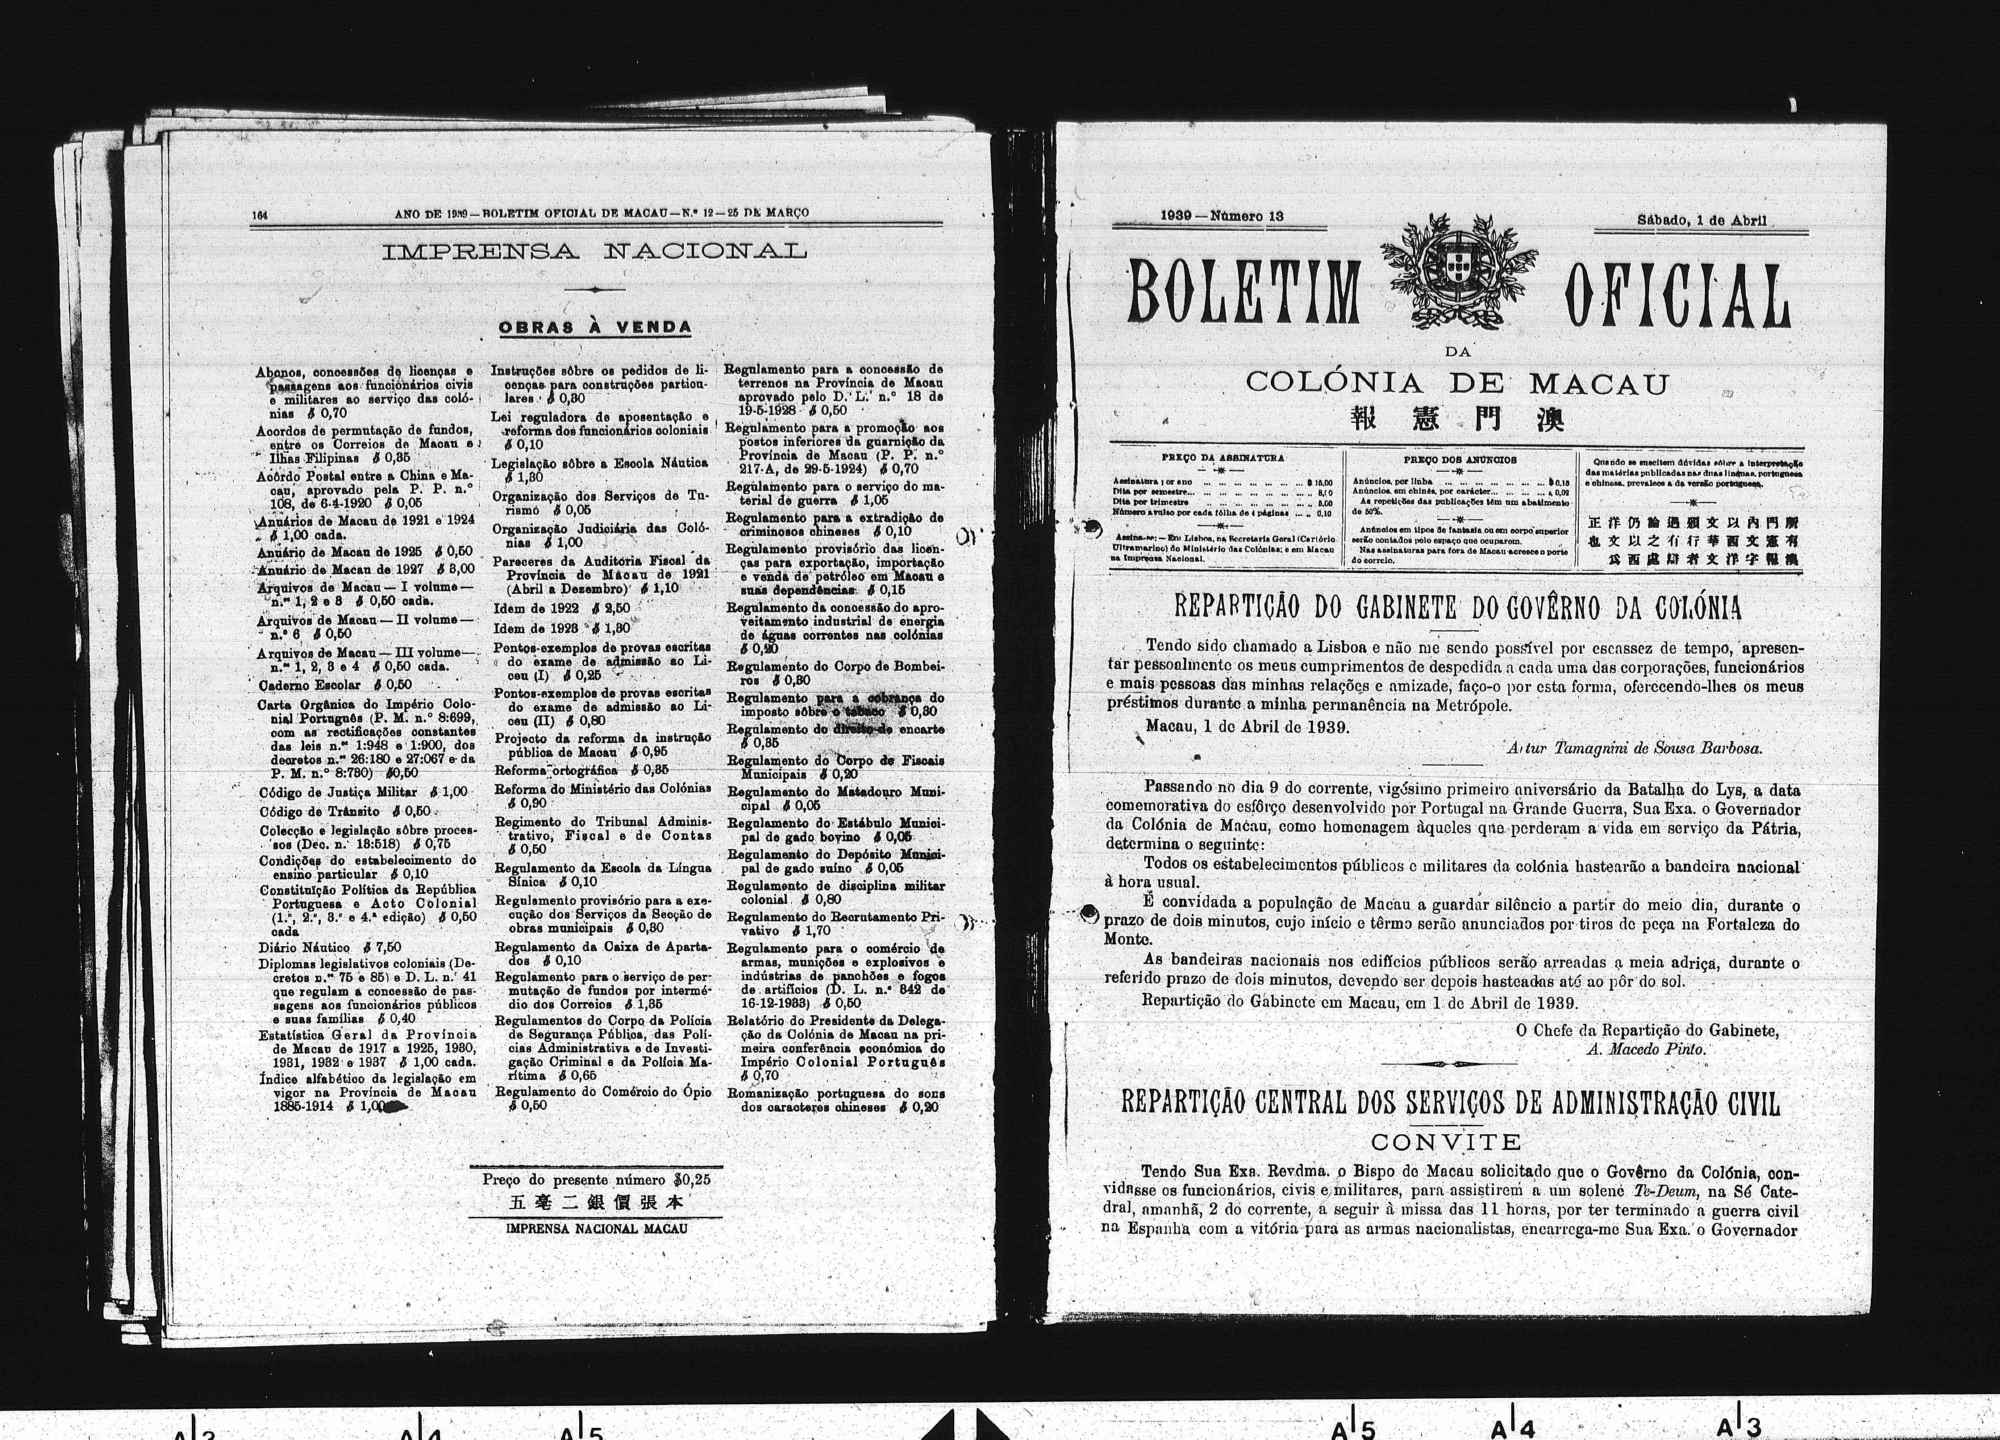 164
ANO DE 1939—BOLETIM OFICIAL DE MACAU—N.º 12—25 DE MARÇO
IMPRENSA NACIONAL
OBRAS À VENDA
Abonos, concessões de licenças e
passagens aos funcionários civis
e militares ao serviço das coló-
nias $ 0,70
Acordos de permutação de fundos,
entre os Correios de Macau e
Ilhas Filipinas $ 0,35
Acôrdo Postal entre a China e Ma-
cau, aprovado pela P. P. n.º
108, de 6-4-1920 $ 0,05
Anuários de Macau de 1921 e 1924
$ 1,00 cada.
Anuário de Macau de 1925 $ 0,50
Anuário de Macau de 1927 $ 3,00
Arquivos de Macau — I volume —
n.ºs 1, 2 e 3 $ 0,50 cada.
Arquivos de Macau — II volume —
n.º 6 $ 0,50
Arquivos de Macau — III volume —
n.ºs 1, 2, 3 e 4 $ 0,50 cada.
Caderno Escolar $ 0,50
Carta Orgânica do Império Colo-
nial Português (P. M. n.º 8:699,
com as rectificações constantes
das leis n.ºs 1:948 e 1:900, dos
decretos n.ºs 26:180 e 27:067 e da
P. M. n.º 8:730) $0,50
Código de Justiça Militar $ 1,00
Código de Trânsito $ 0,50
Colecção e legislação sôbre proces-
sos (Dec. n.º 18:518) $ 0,75
Condições do estabelecimento do
ensino particular $ 0,10
Constituição Política da República
Portuguesa e Acto Colonial
(1.ª, 2.ª, 3.ª e 4.ª edição) $ 0,50
cada
Diário Náutico $ 7,50
Diplomas legislativos coloniais (De-
cretos n.ºs 75 e 85) e D. L. n.º 41
que regulam a concessão de pas-
sagens aos funcionários públicos
e suas famílias $ 0,40
Estatística Geral da Província
de Macau de 1917 a 1925, 1930,
1931, 1932 e 1937 $ 1,00 cada.
Índice alfabético da legislação em
vigor na Província de Macau
1885-1914 $ 1,00
Instruções sôbre os pedidos de li-
cenças para construções particu-
lares $ 0,30
Lei reguladora de aposentação e
reforma dos funcionários coloniais
$ 0,10
Legislação sôbre a Escola Náutica
$ 1,30
Organização dos Serviços de Tu-
rismo $ 0,05
Organização Judiciária das Coló-
nias $ 1,00
Pareceres da Auditoria Fiscal da
Província de Macau de 1921
(Abril a Dezembro) $ 1,10
Idem de 1922 $ 2,50
Idem de 1923 $ 1,30
Pontos-exemplos de provas escritas
do exame de admissão ao Li-
ceu (I) $ 0,25
Pontos-exemplos de provas escritas
do exame de admissão ao Li-
ceu (II) $ 0,80
Projecto da reforma da instrução
pública de Macau $ 0,95
Reforma ortográfica $ 0,35
Reforma do Ministério das Colónias
$ 0,90
Regimento do Tribunal Adminis-
trativo, Fiscal e de Contas
$ 0,50
Regulamento da Escola da Língua
Sínica $ 0,10
Regulamento provisório para a exe-
cução dos Serviços da Secção de
obras municipais $ 0,30
Regulamento da Caixa de Aparta-
dos $ 0,10
Regulamento para o serviço de per-
mutação de fundos por intermé-
dio dos Correios $ 1,35
Regulamentos do Corpo da Polícia
de Segurança Pública, das Polí-
cias Administrativa e de Investi-
gação Criminal e da Polícia Ma-
rítima $ 0,65
Regulamento do Comércio do Ópio
$ 0,50
Regulamento para a concessão de
terrenos na Província de Macau
aprovado pelo D. L. n.º 18 de
19-5-1928 $ 0,50
Regulamento para a promoção aos
postos inferiores da guarnição da
Província de Macau (P. P. n.º
217-A, de 29-5-1924) $ 0,70
Regulamento para o serviço do ma-
terial de guerra $ 1,05
Regulamento para a extradição de
criminosos chineses $ 0,10
Regulamento provisório das licen-
ças para exportação, importação
e venda de petróleo em Macau e
suas dependências $ 0,15
Regulamento da concessão do apro-
veitamento industrial de energia
de águas correntes nas colónias
$ 0,20
Regulamento do Corpo de Bombei-
ros $ 0,30
Regulamento para a cobrança do
imposto sôbre o tabaco $ 0,30
Regulamento do direito de encarte
$ 0,35
Regulamento do Corpo de Fiscais
Municipais $ 0,20
Regulamento do Matadouro Muni-
cipal $ 0,05
Regulamento do Estábulo Munici-
pal de gado bovino $ 0,05
Regulamento do Depósito Munici-
pal de gado suíno $ 0,05
Regulamento de disciplina militar
colonial $ 0,80
Regulamento do Recrutamento Pri-
vativo $ 1,70
Regulamento para o comércio de
armas, munições e explosivos e
indústrias de panchões e fogos
de artifícios (D. L. n.º 342 de
16-12-1933) $ 0,50
Relatório do Presidente da Delega-
ção da Colónia de Macau na pri-
meira conferência económica do
Império Colonial Português
$ 0,70
Romanização portuguesa do sons
dos caracteres chineses $ 0,20
Preço do presente número $0,25
五毫二銀價張本
IMPRENSA NACIONAL MACAU
1939 — Número 13
Sábado, 1 de Abril
BOLETIM OFICIAL
DA
COLÓNIA DE MACAU
報憲門澳
PREÇO DA ASSINATURA
Assinatura por ano ... $ 15,00
Dita por semestre ... „ 8,00
Dita por trimestre ... „ 5,00
Número avulso por cada fôlha de 4 páginas ... „ 0,10
Assina-se: — Em Lisboa, na Secretaria Geral (Cartório
Ultramarino) do Ministério das Colónias; e em Macau
na Imprensa Nacional.
PREÇO DOS ANÚNCIOS
Anúncios, por linha ... $ 0,15
Anúncios, em chinês, por carácter ... „ 0,02
As repetições das publicações têm um abatimento
de 50%.
Anúncios em tipos de fantasia ou em corpo superior
serão contados pelo espaço que ocuparem.
Nas assinaturas para fora de Macau acresce o porte
do correio.
Quando se suscitem dúvidas sôbre a interpretação
das matérias publicadas nas duas línguas, portuguesa
e chinesa, prevalece a da versão portuguesa.
正洋仍論遇頒文以內門所
也文以之有行華西文憲有
爲西處辯者文洋字報澳
REPARTIÇÃO DO GABINETE DO GOVÊRNO DA COLÓNIA
Tendo sido chamado a Lisboa e não me sendo possível por escassez de tempo, apresen-
tar pessoalmente os meus cumprimentos de despedida a cada uma das corporações, funcionários
e mais pessoas das minhas relações e amizade, faço-o por esta forma, oferecendo-lhes os meus
préstimos durante a minha permanência na Metrópole.
Macau, 1 de Abril de 1939.
Artur Tamagnini de Sousa Barbosa.
Passando no dia 9 do corrente, vigésimo primeiro aniversário da Batalha do Lys, a data
comemorativa do esfôrço desenvolvido por Portugal na Grande Guerra, Sua Exa. o Governador
da Colónia de Macau, como homenagem àqueles que perderam a vida em serviço da Pátria,
determina o seguinte:
Todos os estabelecimentos públicos e militares da colónia hastearão a bandeira nacional
à hora usual.
É convidada a população de Macau a guardar silêncio a partir do meio dia, durante o
prazo de dois minutos, cujo início e têrmo serão anunciados por tiros de peça na Fortaleza do
Monte.
As bandeiras nacionais nos edifícios públicos serão arreadas a meia adriça, durante o
referido prazo de dois minutos, devendo ser depois hasteadas até ao pôr do sol.
Repartição do Gabinete em Macau, em 1 de Abril de 1939.
O Chefe da Repartição do Gabinete,
A. Macedo Pinto.
REPARTIÇÃO CENTRAL DOS SERVIÇOS DE ADMINISTRAÇÃO CIVIL
CONVITE
Tendo Sua Exa. Revdma. o Bispo de Macau solicitado que o Govêrno da Colónia, con-
vidasse os funcionários, civis e militares, para assistirem a um solene Te-Deum, na Sé Cate-
dral, amanhã, 2 do corrente, a seguir à missa das 11 horas, por ter terminado a guerra civil
na Espanha com a vitória para as armas nacionalistas, encarrega-me Sua Exa. o Governador
A3
A4
A5
A5
A4
A3